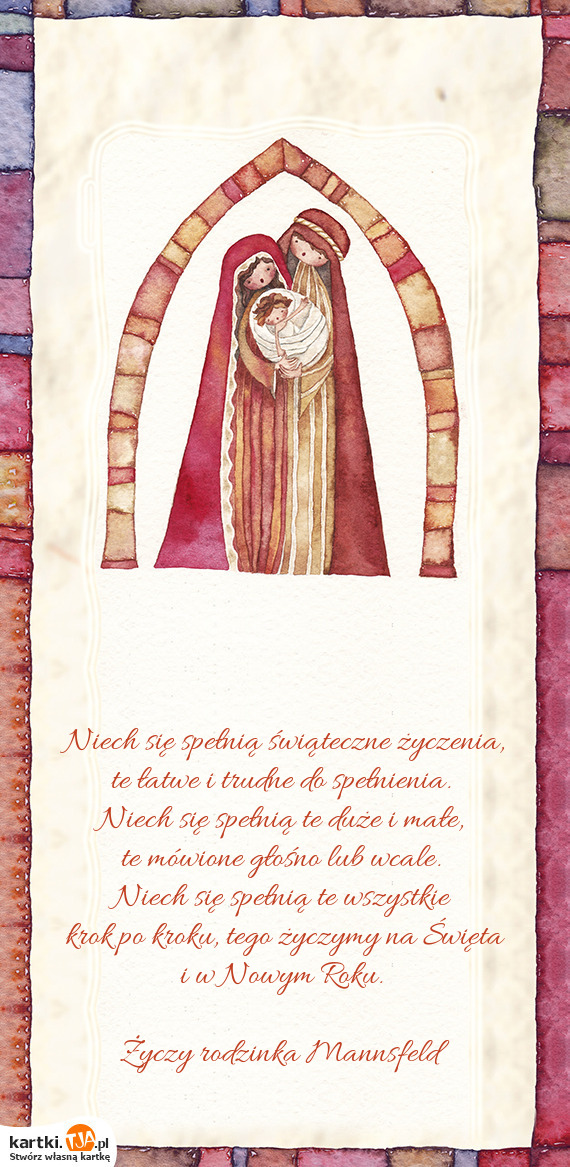 Niech się spełnią świąteczne życzenia,
te łatwe i trudne do spełnienia.
Niech się spełnią te duże i małe,
te mówione głośno lub wcale.
Niech się spełnią te wszystkie
krok po kroku, tego życzymy na Święta
i w Nowym Roku.
Życzy rodzinka Mannsfeld
kartki.TJA.pl
Stwórz własną kartkę